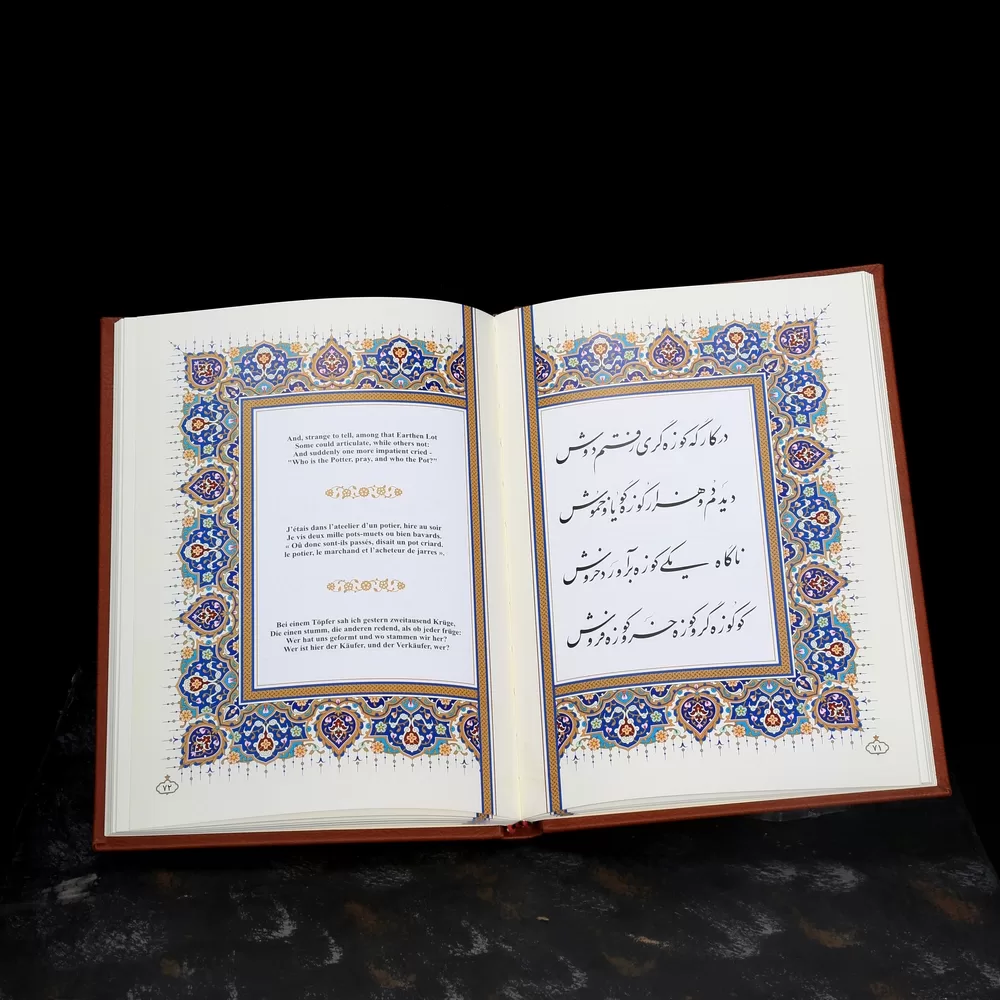 And, strange to tell, among that Earthen Lot
Some could articulate, while others not:
And suddenly one more impatient cried -
"Who is the Potter, pray, and who the Pot?"
J'étais dans l'ateelier d'un potier, hire au soir
Je vis deux mille pots-muets ou bien bavards.
« Où donc sont-ils passés, disait un pot criard.
le potier, le marchand et l'acheteur de jarres ».
Bei einem Töpfer sah ich gestern zweitausend Krüge,
Die einen stumm, die anderen redend, als ob jeder früge:
Wer hat uns geformt und wo stammen wir her?
Wer ist hier der Käufer, und der Verkäufer, wer?
۷۲
در کارگه کوزه گری رفتم دوش
دیدم دو هزار کوزه گویا و خموش
ناگاه یکی کوزه برآورد خروش
کو کوزه گر و کوزه خر و کوزه فروش
۷۱